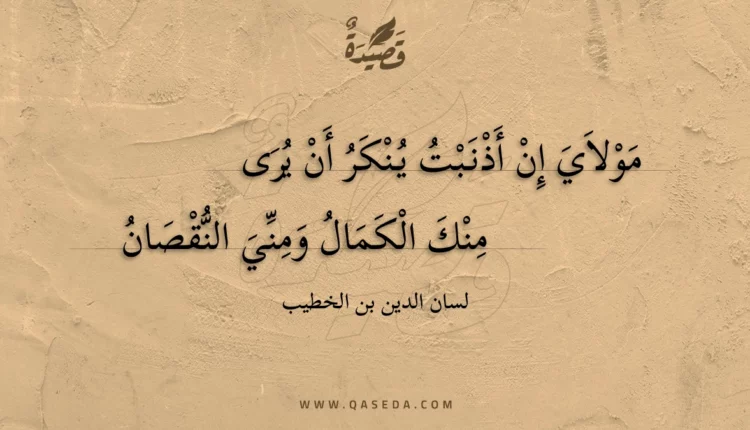 قَصِيدَةٌ
مَوْلاَيَ إِنْ أَذْنَبْتُ يُنْكَرُ أَنْ يُرَى
مِنْكَ الْكَمَالُ وَمِنِّيَ النُّقْصَانُ
لسان الدين بن الخطيب
WWW.QASEDA.COM